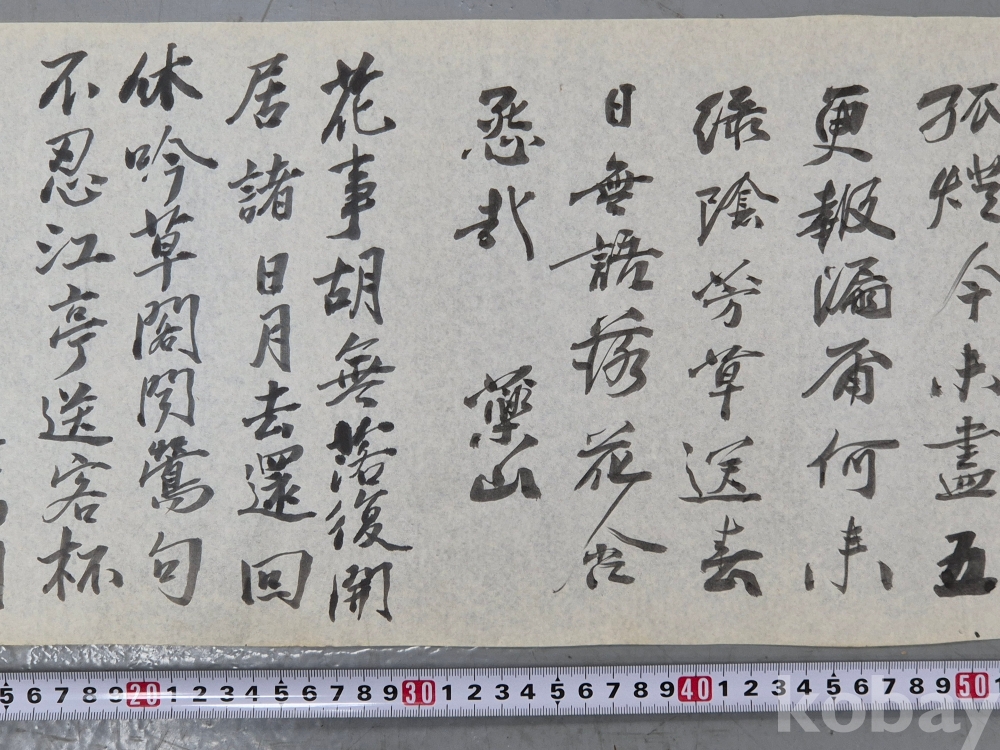 孤燈今未盡五
更報漏爾何来
綠陰芳草送去
日無語落花含
愁哉 藥山
花事胡無落復開
居諸日月去還回
休吟草閣聞鶯句
不忍江亭送客杯
5 6 7 8 9 20 1 2 3 4 5 6 7 8 9 30 1 2 3 4 5 6 7 8 9 40 1 2 3 4 5 6 7 8 9 50 1
kobay